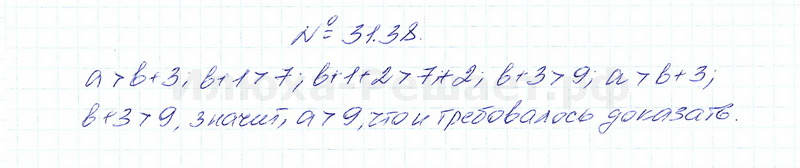 № 31.38.
a > b+3, b+1 > 7; b+1+2 > 7+2; b+3 > 9; a > b+3;
b+3 > 9, значит, a > 9, что и требовалось доказать.